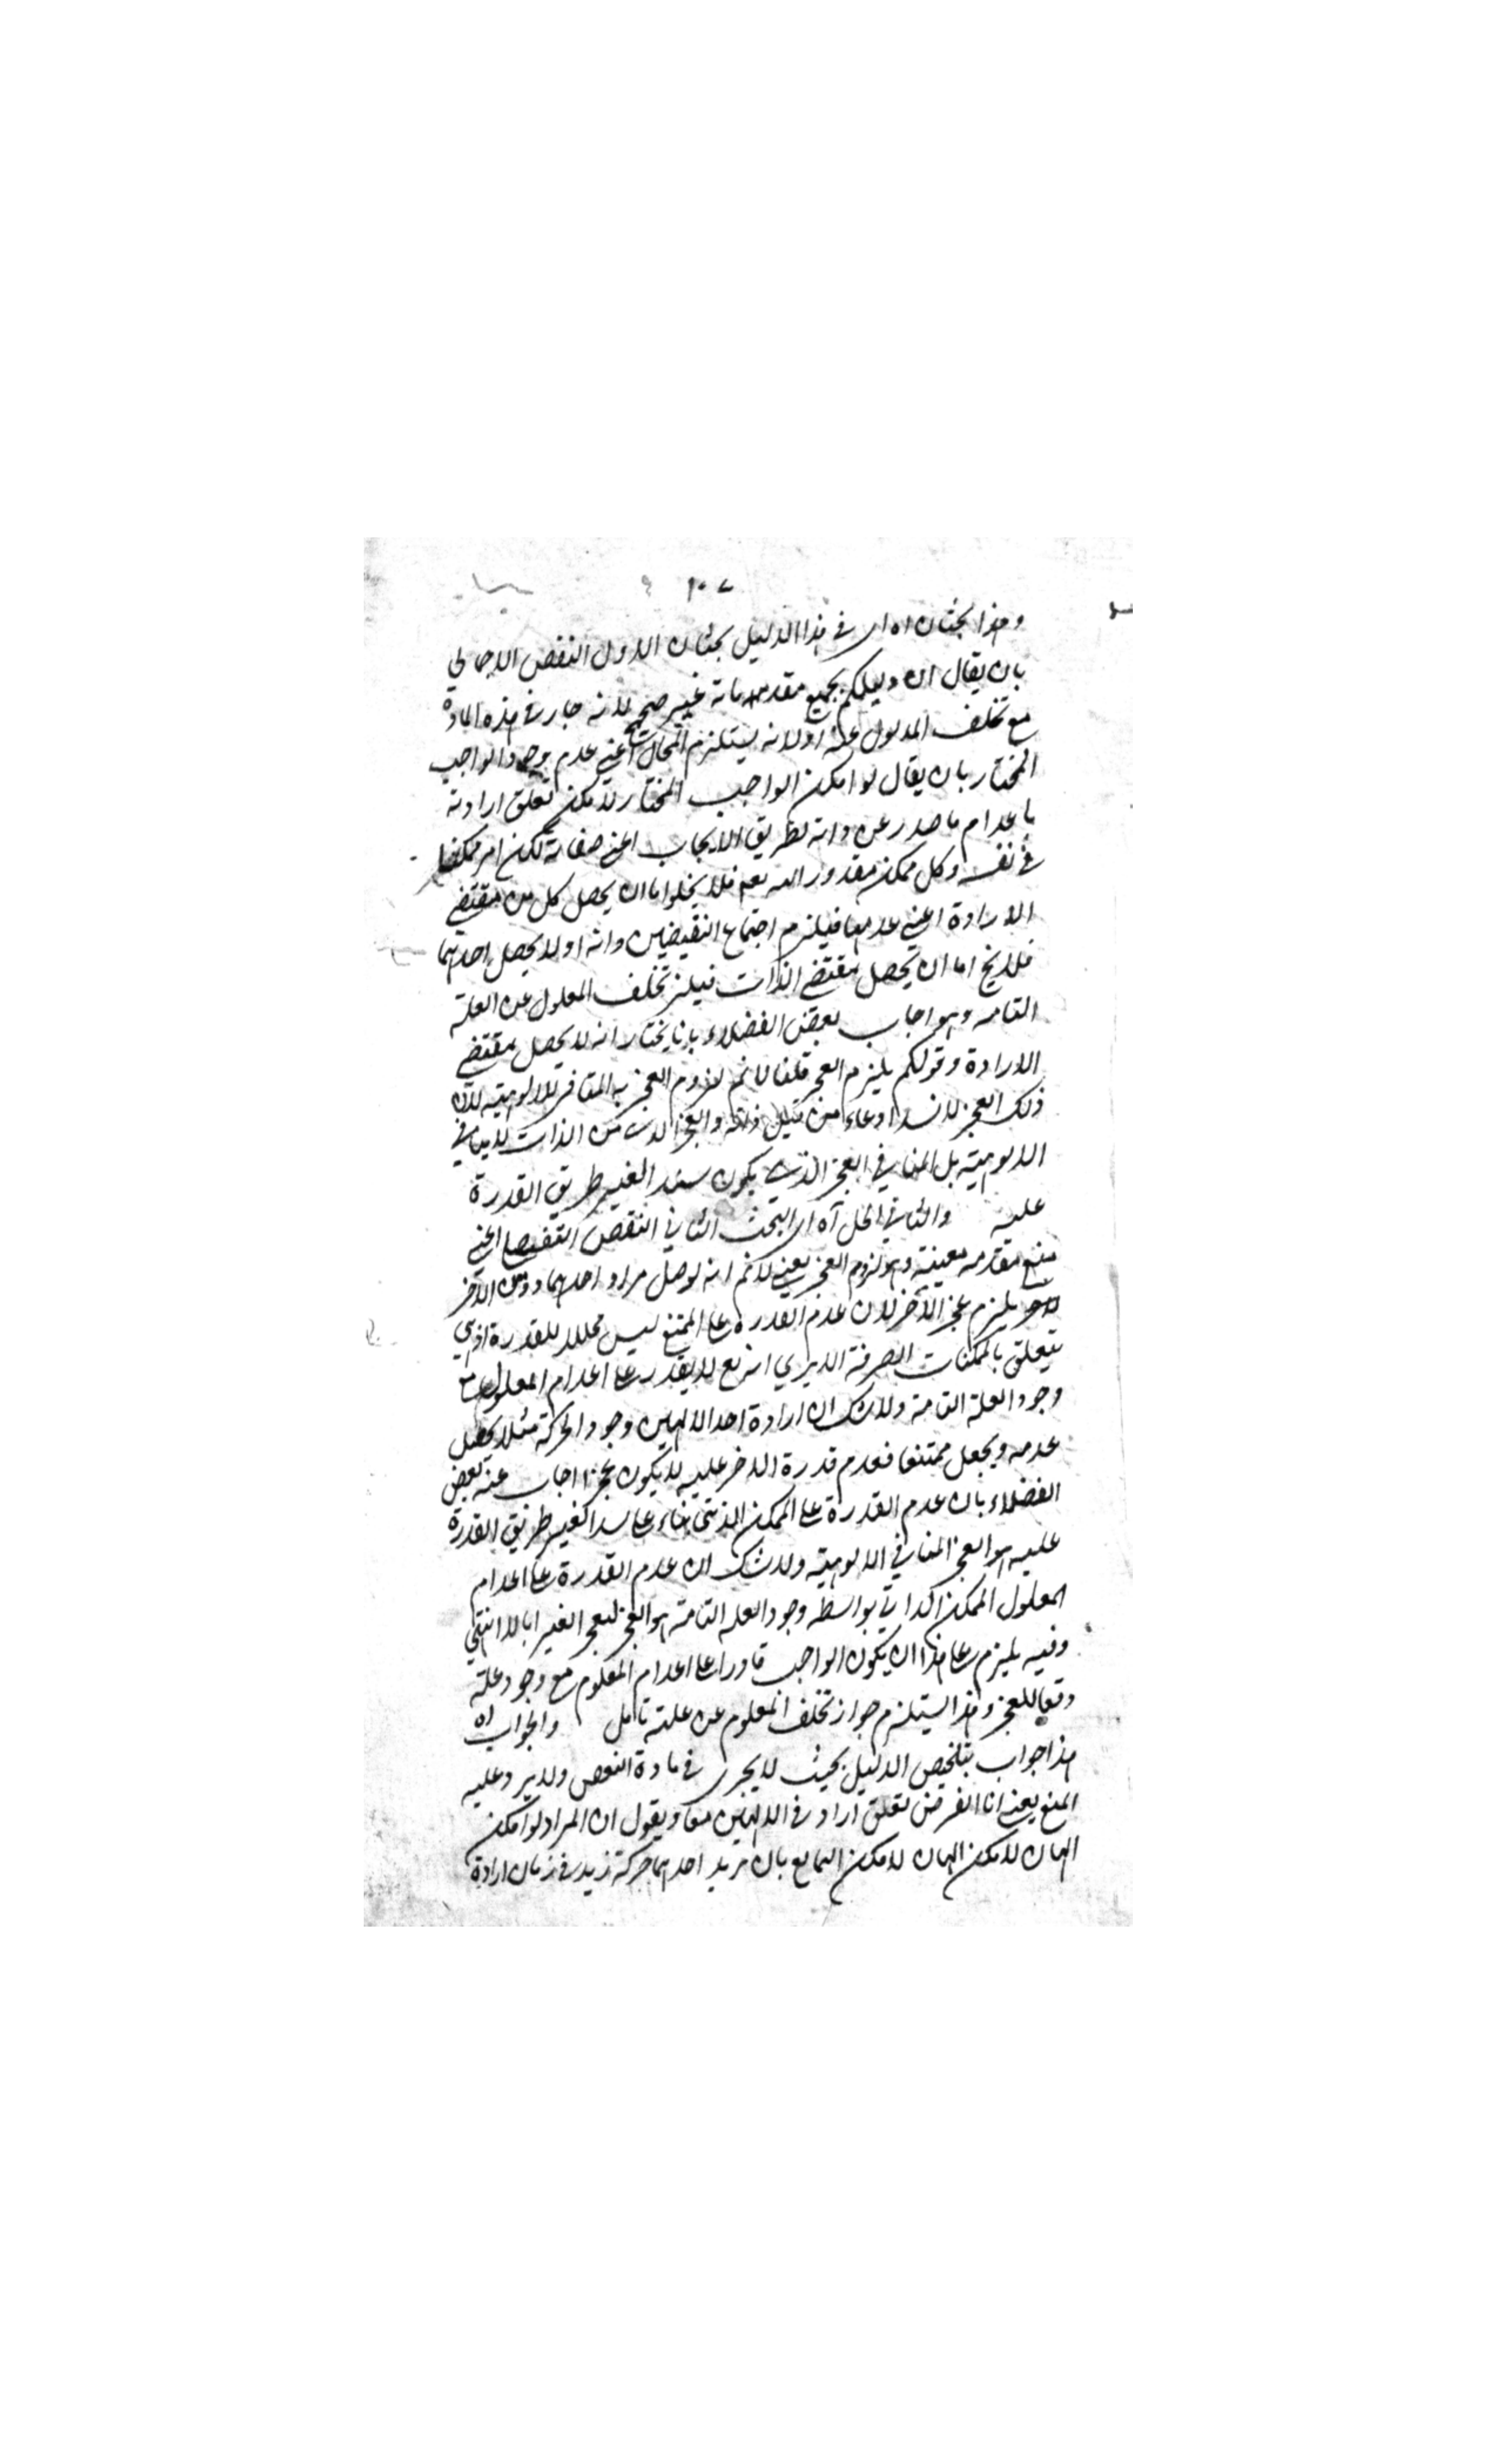 ١٠٧
وهذا بحثان اه اى فى هذا الدليل بحثان الاول النقض الاجمالي
بان يقال ان دليلكم بجميع مقدماته غير صحيح لانه جار فى هذه المادة
مع تخلف المدلول عنه او لانه يستلزم المحال اعنى عدم وجود الواجب
المختار بان يقال لو امكن الواجب المختار لامكن تعلق ارادته
باعدام ما صدر عن ذاته بطريق الايجاب اعنى صفاته لكن امر ممكنا
فى نفسه وكل ممكن مقدور الله تعم فلا يخلوا ما ان يحصل كل من مقتضى
الارادة اعنى عدمها فيلزم اجتماع النقيضين وانه او لا يحصل احدهما
فلايخ اما ان يحصل مقتضى الذات فيلزم تخلف المعلول عن العلة
التامه وهو اجاب بعض الفضلاء بانا يختار انه لا يحصل مقتضى
الارادة وقولكم يلزم العجز قلنا لانم لزوم العجز به المنافى للالوهية لان
ذلك العجز من قبل ذاته والعجز من الذات لا ينافى
الالوهية بل المنافي العجز الذى يكون سد الغير طريق القدرة
عليه والثاني الحل آه اى البحث الثاني النقض التفصيلى اعنى
منع مقدمه معينة وهو لزوم العجز يعنى لانم انه لو حصل مراد احدهما دون الاخر
يلزم عجز الآخر لان عدم القدرة على الممتنع ليس محلا للقدرة اذ هي
يتعلق بالممكنات الصرفة الا يرى انه تع لا يقدر على اعدام المعلول مع
وجود العلة التامة ولا شك ان ارادة احد الالهين وجود الحركة مثلا يحصل
عدمه ويجعل ممتنعا فعدم قدرة الاخر عليه لا يكون عجزا اجاب عنه بعض
الفضلاء بان عدم القدرة على الممكن الذاتى بناء على سد الغير طريق القدرة
عليه هو العجز المنافي الالوهية ولا شك ان عدم القدرة على اعدام
المعلول الممكن الذاتي بواسطه وجود العله التامة هو العجز
وفيه يلزم على هذا ان يكون الواجب قادرا على اعدام المعلوم مع وجود علته
دفعا للعجز وهذا يستلزم جواز تخلف المعلوم عن علته تامل والجواب اه
هذا جواب بتلخيص الدليل بحيث لا يجرى فى مادة النقض ولا يرد عليه
المنع يعنى انا نفرض تعلق اراد فى الالهين معا ويقول ان المراد لو امكن
الهان لامكن الهان لامكن التمانع بان يريد احدهما حركة زيد فى زمان ارادة